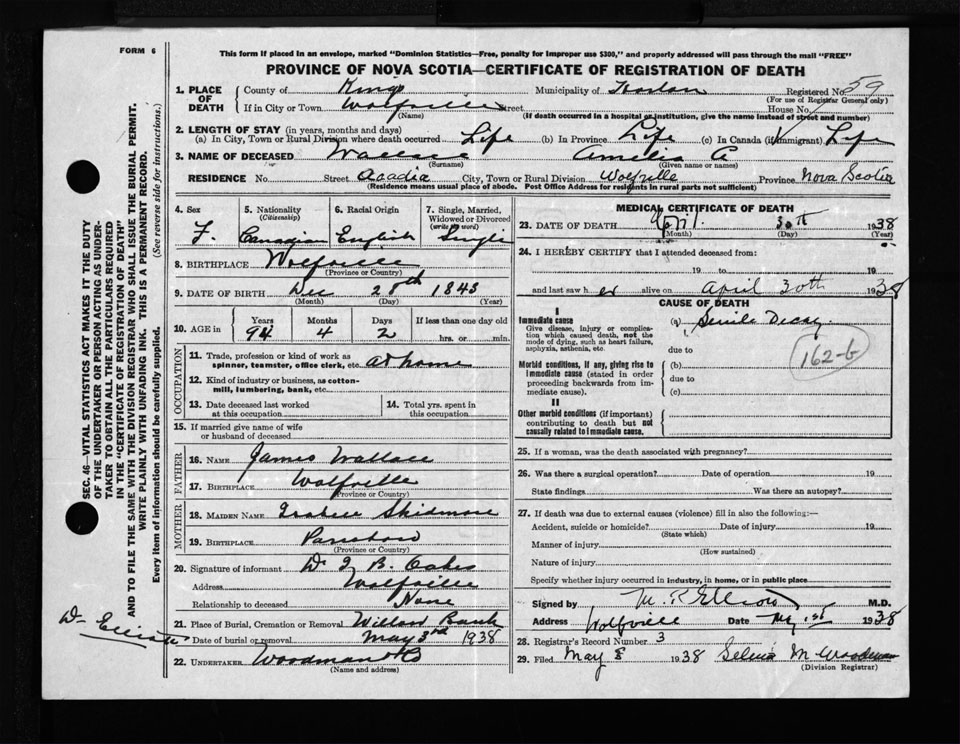 FORM 6
This form if placed in an envelope, marked "Dominion Statistics—Free, penalty for improper use $300," and properly addressed will pass through the mail "FREE"
PROVINCE OF NOVA SCOTIA—CERTIFICATE OF REGISTRATION OF DEATH
1. PLACE OF DEATH
County of Kings Municipality of Registered No. 59
(For use of Registrar General only)
If in City or Town Wolfville Street House No.
(Name) (If death occurred in a hospital or institution, give the name instead of street and number)
2. LENGTH OF STAY (in years, months and days)
(a) In City, Town or Rural Division where death occurred Life (b) In Province Life (c) In Canada (if immigrant) Life
3. NAME OF DECEASED Wallace Amelia A
(Surname) (Given name or names)
RESIDENCE No. Street Acadia City, Town or Rural Division Wolfville Province Nova Scotia
(Residence means usual place of abode. Post Office Address for residents in rural parts not sufficient)
4. Sex 5. Nationality (Citizenship) 6. Racial Origin 7. Single, Married, Widowed or Divorced (write the word)
F. Canadian English Single
8. BIRTHPLACE Wolfville
(Province or Country)
9. DATE OF BIRTH Dec 28th 1843
(Month) (Day) (Year)
10. AGE in Years Months Days If less than one day old
94 4 2 hrs. or min.
OCCUPATION
11. Trade, profession or kind of work as spinner, teamster, office clerk, etc. at home
12. Kind of industry or business, as cotton-mill, lumbering, bank, etc.
13. Date deceased last worked at this occupation
14. Total yrs. spent in this occupation
15. If married give name of wife or husband of deceased
FATHER
16. NAME James Wallace
17. BIRTHPLACE Wolfville
(Province or Country)
MOTHER
18. MAIDEN NAME Skidmore
19. BIRTHPLACE Parrsboro
(Province or Country)
20. Signature of informant Dr B. Oakes
Address Wolfville
Relationship to deceased None
21. Place of Burial, Cremation or Removal Willow Bank
Date of burial or removal May 3rd 1938
22. UNDERTAKER Woodman & Co
(Name and address)
MEDICAL CERTIFICATE OF DEATH
23. DATE OF DEATH April 30th 1938
(Month) (Day) (Year)
24. I HEREBY CERTIFY that I attended deceased from:
19 to 19
and last saw h er alive on April 30th 1938
CAUSE OF DEATH
I
Immediate cause (a) Senile Decay
Give disease, injury or complication which caused death, not the mode of dying, such as heart failure, asphyxia, asthenia, etc.
due to
162-b
Morbid conditions, if any, giving rise to immediate cause (stated in order proceeding backwards from immediate cause).
(b)
due to
(c)
II
Other morbid conditions (if important) contributing to death but not causally related to immediate cause.
25. If a woman, was the death associated with pregnancy?
26. Was there a surgical operation? Date of operation 19
State findings Was there an autopsy?
27. If death was due to external causes (violence) fill in also the following:—
Accident, suicide or homicide? Date of injury 19
(State which)
Manner of injury
(How sustained)
Nature of injury
Specify whether injury occurred in industry, in home, or in public place
Signed by M. R Elliott M.D.
Address Wolfville Date May 1st 1938
28. Registrar's Record Number 3
29. Filed May 1938 M Woodman
(Division Registrar)
SEC. 46—VITAL STATISTICS ACT MAKES IT THE DUTY
OF THE UNDERTAKER OR PERSON ACTING AS UNDER-
TAKER TO OBTAIN ALL THE PARTICULARS REQUIRED
IN THE "CERTIFICATE OF REGISTRATION OF DEATH"
AND TO FILE THE SAME WITH THE DIVISION REGISTRAR WHO SHALL ISSUE THE BURIAL PERMIT.
WRITE PLAINLY WITH UNFADING INK. THIS IS A PERMANENT RECORD.
Every item of information should be carefully supplied. (See reverse side for instructions.)
Dr Elliott